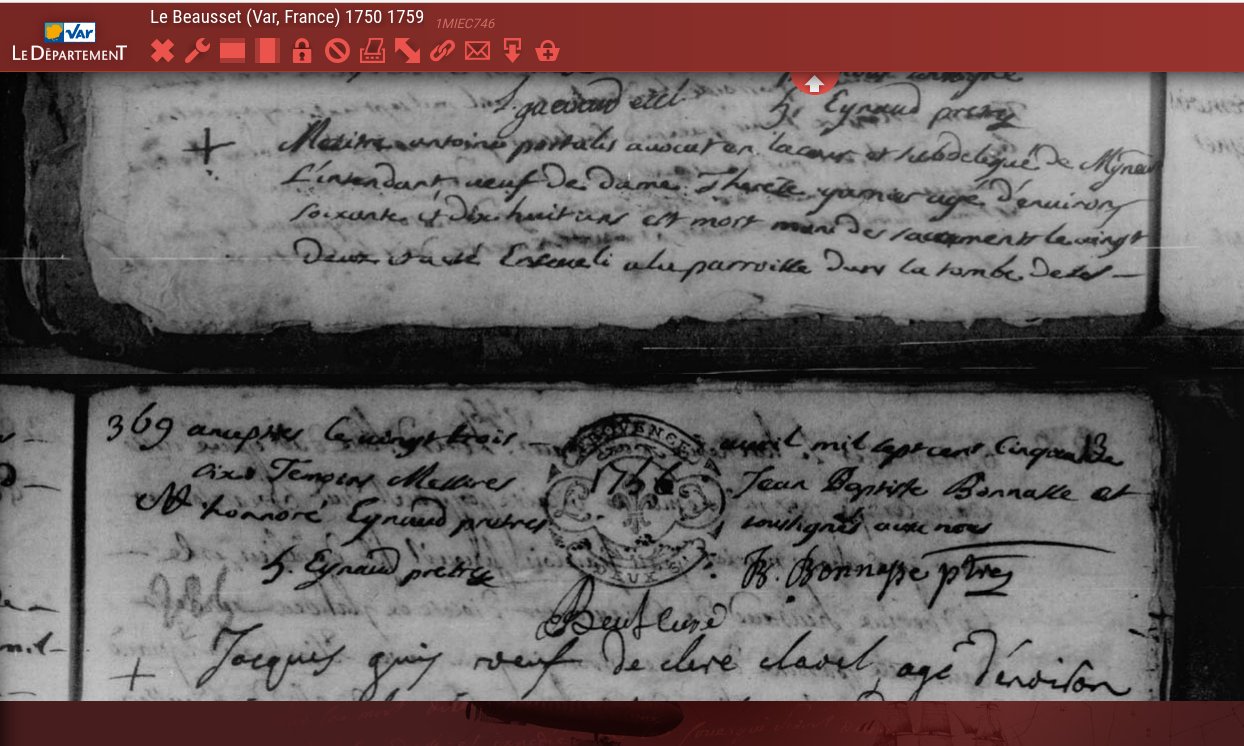 Le Beausset (Var, France) 1750 1759
1MIEC746
VAR
LE DÉPARTEMENT
h. Eynaud pretre
Maitre antoine portalis avocat en la cour et subdelegué de Mgneur
L'intendant veuf de dame Therese garnier agé d'environ
soixante et dix huit ans est mort muni des sacrements le vingt
deux et a eté Enseveli a la parroisse dans la tombe de ses
369 ancestres le vingt trois avril mil sept cens cinquante
six Temoins Messires Jean Baptiste Bonnasse et
honnoré Eynaud pretres soussignés avec nous
PROVENCE
1756
DEUX S
h. Eynaud pretre
B. Bonnasse ptre
curé
Jacques veuf de clere clavel, agé d'environ